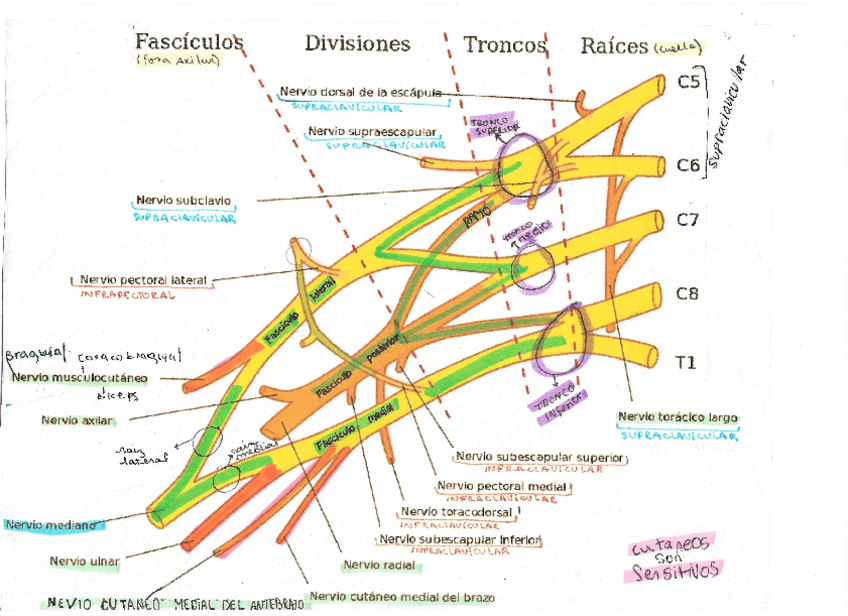 Fascículos Divisiones Troncos Raíces (cuello)
(Fosa Axilar)
C5
supraclavicular
Nervio dorsal de la escápula
SUPRACLAVICULAR
TRONCO SUPERIOR
Nervio supraescapular
SUPRACLAVICULAR
C6
Nervio subclavio
SUPRACLAVICULAR
RAMO
C7
TRONCO MEDIO
Nervio pectoral lateral
INFRAPECTORAL
Fascículo lateral
C8
Braquial coracobraquial
Nervio musculocutáneo
biceps
Fascículo posterior
T1
TRONCO INFERIOR
Nervio axilar
Fascículo medial
Nervio torácico largo
SUPRACLAVICULAR
raiz lateral
raiz medial
Nervio subescapular superior
INFRACLAVICULAR
Nervio pectoral medial
INFRACLAVICULAR
Nervio toracodorsal
INFRACLAVICULAR
Nervio mediano
Nervio subescapular inferior
INFRACLAVICULAR
Cutaneos
son
Sensitivos
Nervio ulnar
Nervio radial
Nervio cutáneo medial del brazo
NEVIO CUTANEO MEDIAL DEL ANTEBRAZO